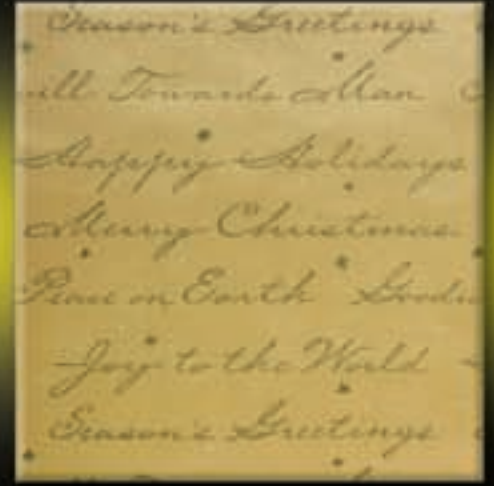 Season's Greetings
will Towards Man
Happy Holidays
Merry Christmas
Peace on Earth Goodw
Joy to the World
Season's Greetings